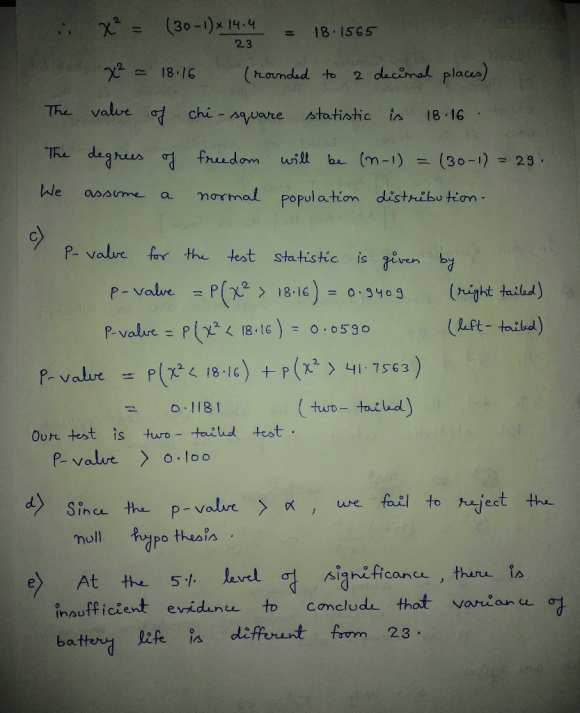 ∴ χ² = (30-1)×14.4 / 23 = 18.1565
χ² ≃ 18.16 (rounded to 2 decimal places)
The value of chi-square statistic is 18.16.
The degrees of freedom will be (n-1) = (30-1) = 29.
We assume a normal population distribution.
c)
P-value for the test statistic is given by
P-value = P(χ² > 18.16) = 0.9409 (right tailed)
P-value = P(χ² < 18.16) = 0.0590 (left-tailed)
P-value = P(χ² < 18.16) + P(χ² > 41.7563)
= 0.1181 (two-tailed)
Our test is two-tailed test.
P-value > 0.100
d) Since the p-value > α, we fail to reject the
null hypothesis.
e) At the 5% level of significance, there is
insufficient evidence to conclude that variance of
battery life is different from 23.